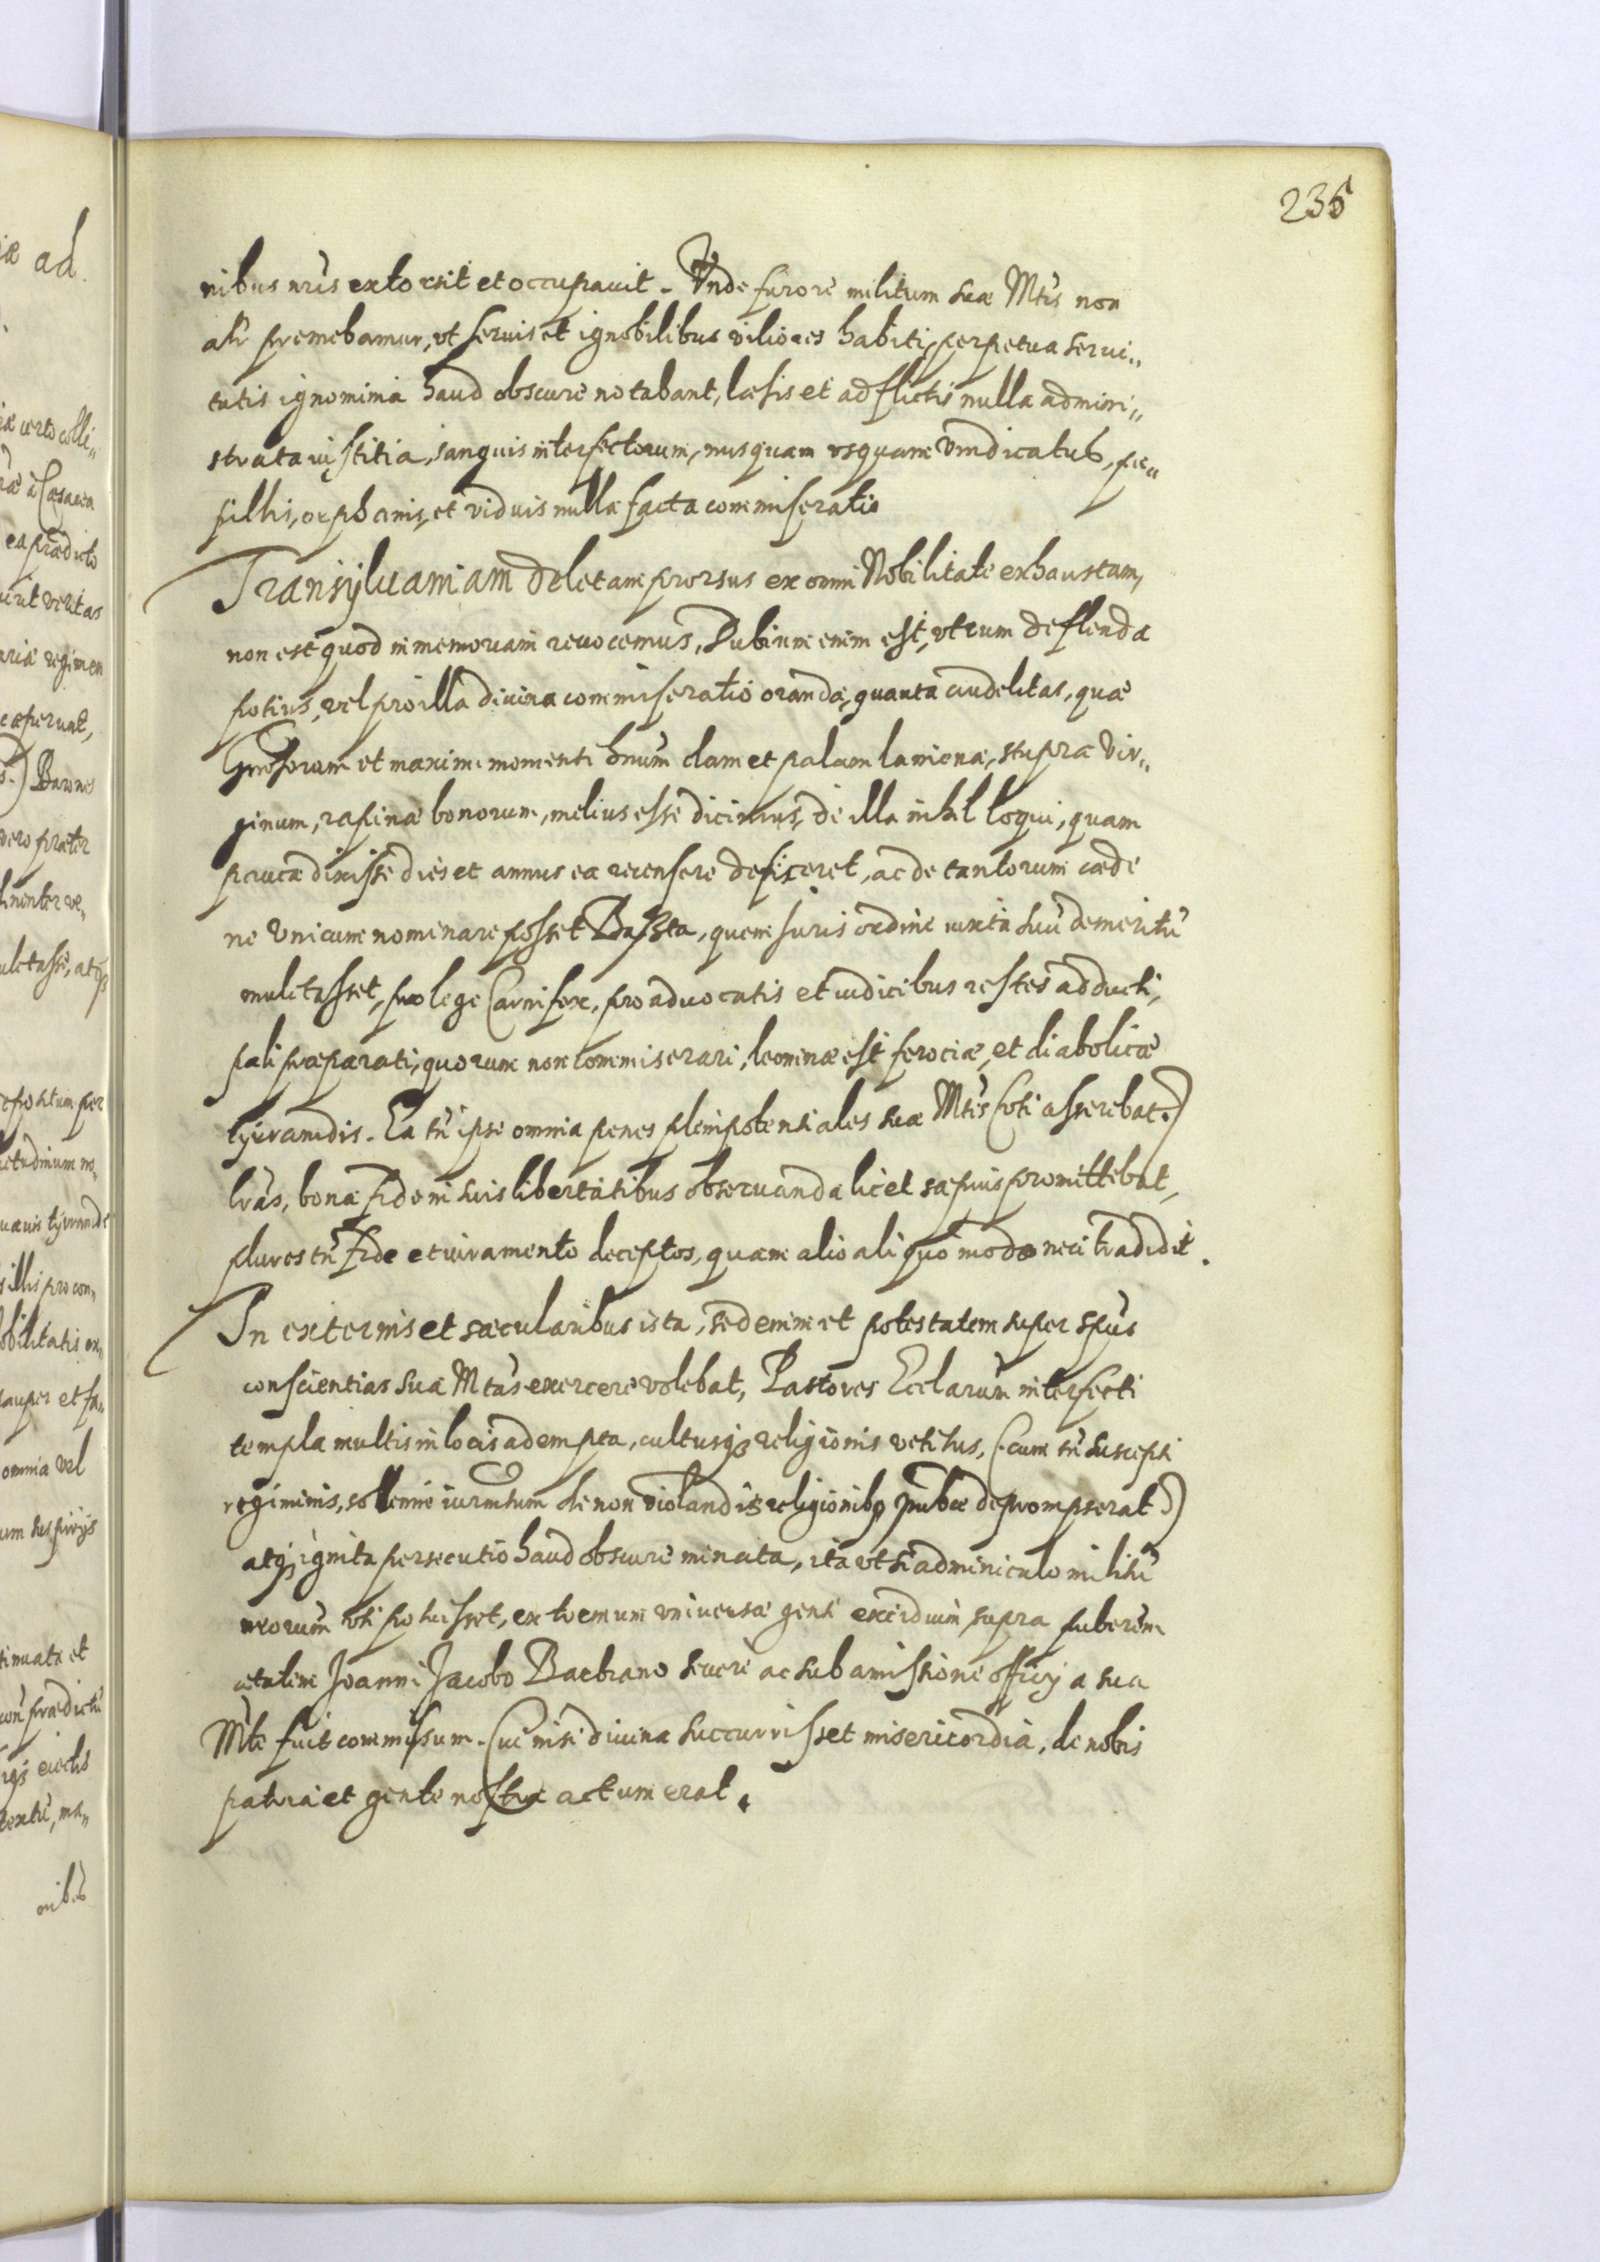 235
nibus nris extorsit et occupauit. Vnde furore militum suae Mtis non
alr premebamur, vt seruis et ignobilibus viliores habiti, perpetua serui„
tutis ignominia haud obscure notabant, laesis et adflictis nulla admini„
strata iustitia, sanguis interfectorum, nusquam vsquam vindicatus, pu„
pillis, orphanis, et viduis nulla facta commiseratio
Transyluaniam deletam prorsus ex omni Nobilitate exhaustam,
non est quod in memoriam reuocemus, Dubium enim est, vtrum deflenda
potius, vel pro illa diuina commiseratio oranda, quanta crudelitas, quae
Grosorum et maximi momenti hnum clam et palam laniena, stupra vir„
ginum, rapinae bonorum, melius esse dicimus, de illa nihil loqui, quam
pauca dixisse dies et annus ea recensere deficeret, ac de tantorum caede
ne vnicum nominare posset Basta, quem iuris ordine iuxta suu demeritu
mulctasset, pro lege Carnifex, pro aduocatis et iudicibus restes adducti,
pali praeparati, quorum non commiserari, leoninae est ferociae, et diabolicae
tyrannidis. Ea tn ipse omnia penes plenipotentiales suae Mtis (vti asserebat.)
lras, bona fide in suis libertatibus obseruanda licet saepius promittebat,
plures tn fide et iuramento deceptos, quam alio aliquo modo neci tradidit.
In externis et saecularibus ista, sed enim et potestatem super spus
conscientias sua Mtas exercere volebat, Pastores Ecclarum interfecti
templa multis in locis adempta, cultusq religionis vetitus, (cum tn suscepti
regiminis, sollenne iurmtum de non violandis religionibq puble deprompserat.)
atq ignita persecutio haud obscure minata, ita vt si adminiculo militu
nrorum vti potuisset, extremum vniuersae genti excidium supra puberem
aetatem Joanni Jacobo Barbiano seuere ac sub amissione officy a sua
Mte fuit commissum. Cui nisi diuina succurrisset misericordia, de nobis
patria et gente nostra actum erat.